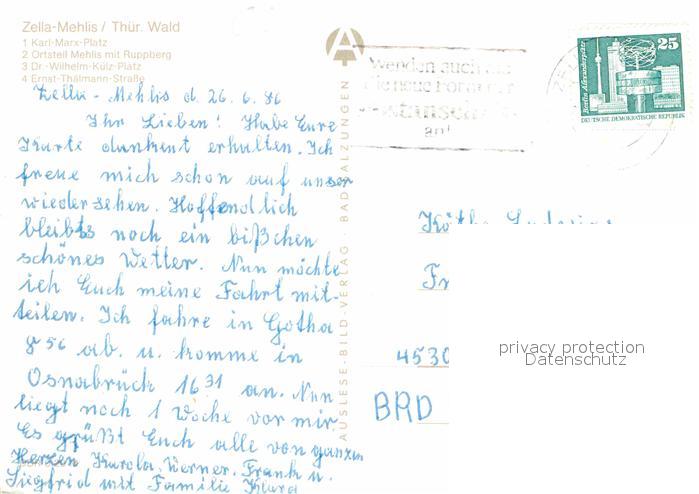 Zella-Mehlis / Thür. Wald
1 Karl-Marx-Platz
2 Ortsteil Mehlis mit Ruppberg
3 Dr.-Wilhelm-Külz-Platz
4 Ernst-Thälmann-Straße
Zella - Mehlis d. 26. 6. 86
Ihr Lieben! Habe Eure
Karte dankent erhalten. Ich
freue mich schon auf unser
wiedersehen. Hoffendlich
bleibts noch ein bißchen
schönes Wetter. Nun möchte
ich Euch meine Fahrt mit-
teilen. Ich fahre in Gotha
8 56 ab. u. komme in
Osnabrück 16 31 an. Nun
liegt noch 1 Woche vor mir.
Es grüßt Euch alle von ganzen
Herzen Karola, Werner, Frank u.
Siegfrid mit Familie Klara
AUSLESE-BILD-VERLAG · BAD SALZUNGEN
Wenden auch
die neue Form der
an!
Berlin, Alexanderplatz
25
DEUTSCHE DEMOKRATISCHE REPUBLIK
Käthe
Fr
4530
BRD
privacy protection
Datenschutz